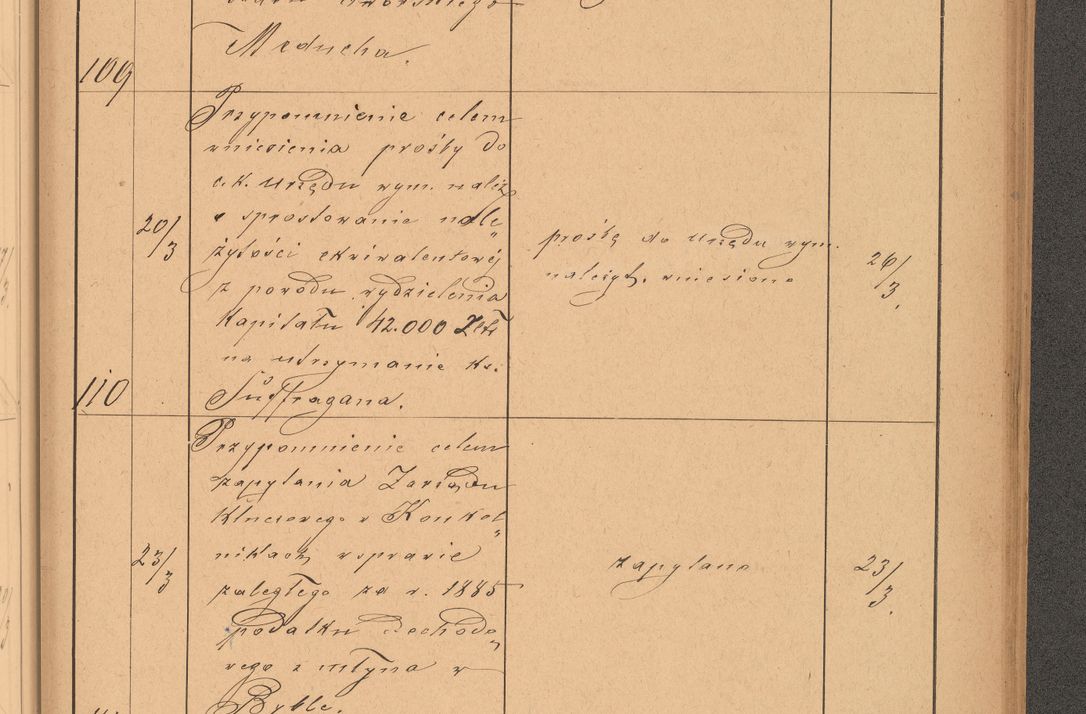 Meducha.
109
Przypomnienie celem
wniesienia prośby do
c. k. urzędu wym. należ.
o sprostowanie nale„
20/3
żytości ekwiwalentowéj
prośbę do urzędu wym.
należyt. wniesiono
26/3.
z powodu wydzielenia
Kapitału 42.000 Złr
na utrzymanie ks.
Suffragana.
110
Przypomnienie celem
zapytania Zarządu
Kluczowego w Konkol„
nikach w sprawie
23/3
zapytano
23/3.
zaległego za r. 1885
podatku dochodo„
wego z młyna w
Bybле.